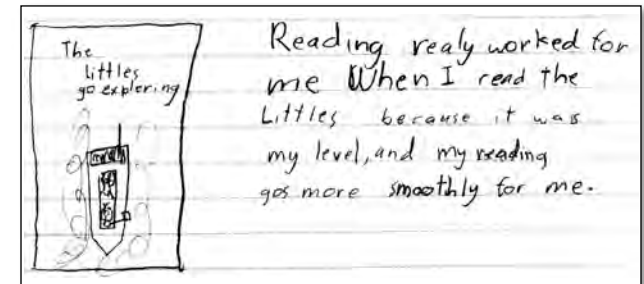 The
Littles
go exploring
Reading realy worked for
me When I read the
Littles because it was
my level, and my reading
gos more smoothly for me.